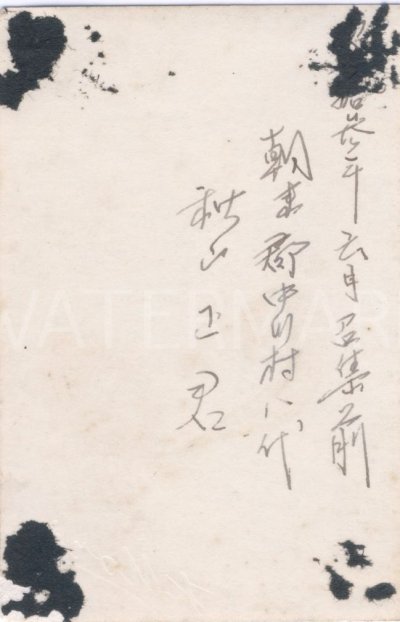 年六月召集前
朝来郡中川村八代
秋山正君
WATERMARK